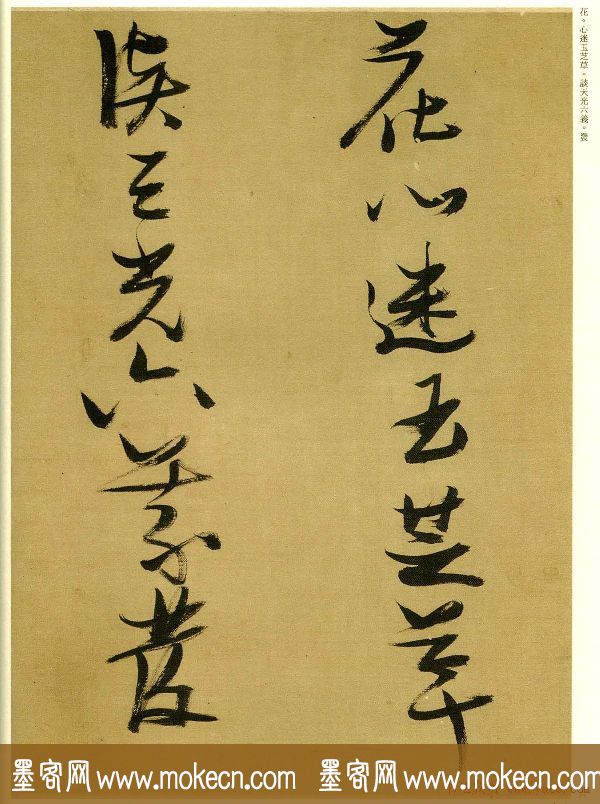 花。心迷玉芝草。談天光六義。發
花心迷玉芝草
談天光六義發
墨客网 www.mokecn.com 墨客网 www.mokecn.com